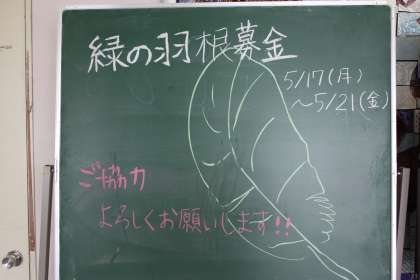 緑の羽根募金
5/17(月)
～5/21(金)
ご協力
よろしくお願いします!!